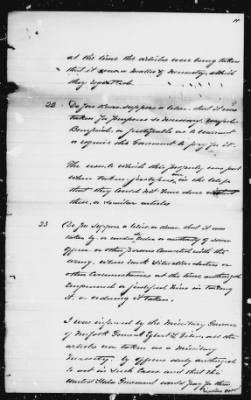 at the time the articles were being taken
that it was a matter of necessity, which
they
22 Do you know, suppose or believe that it was
taken for purposes so necessary,
or justifiable as to warrant
or require the Government to pay for it.
The use to which this property was put
when taken justifies me in the belief
that they could not have done
these or similar articles
23 Do you suppose or believe or deem that it was
taken by or under order or authority of some
officer or other person connected with the
army, when such situation or
other circumstances at the time authorized
empowered or justified him in taking
it, or ordering it taken.
I was informed by the Military Governor
of Norfolk General Egbert L. Viele, all the
articles were taken as a military
necessity, by officers duly authorized
to act in such cases and that the
United States Government would pay for them